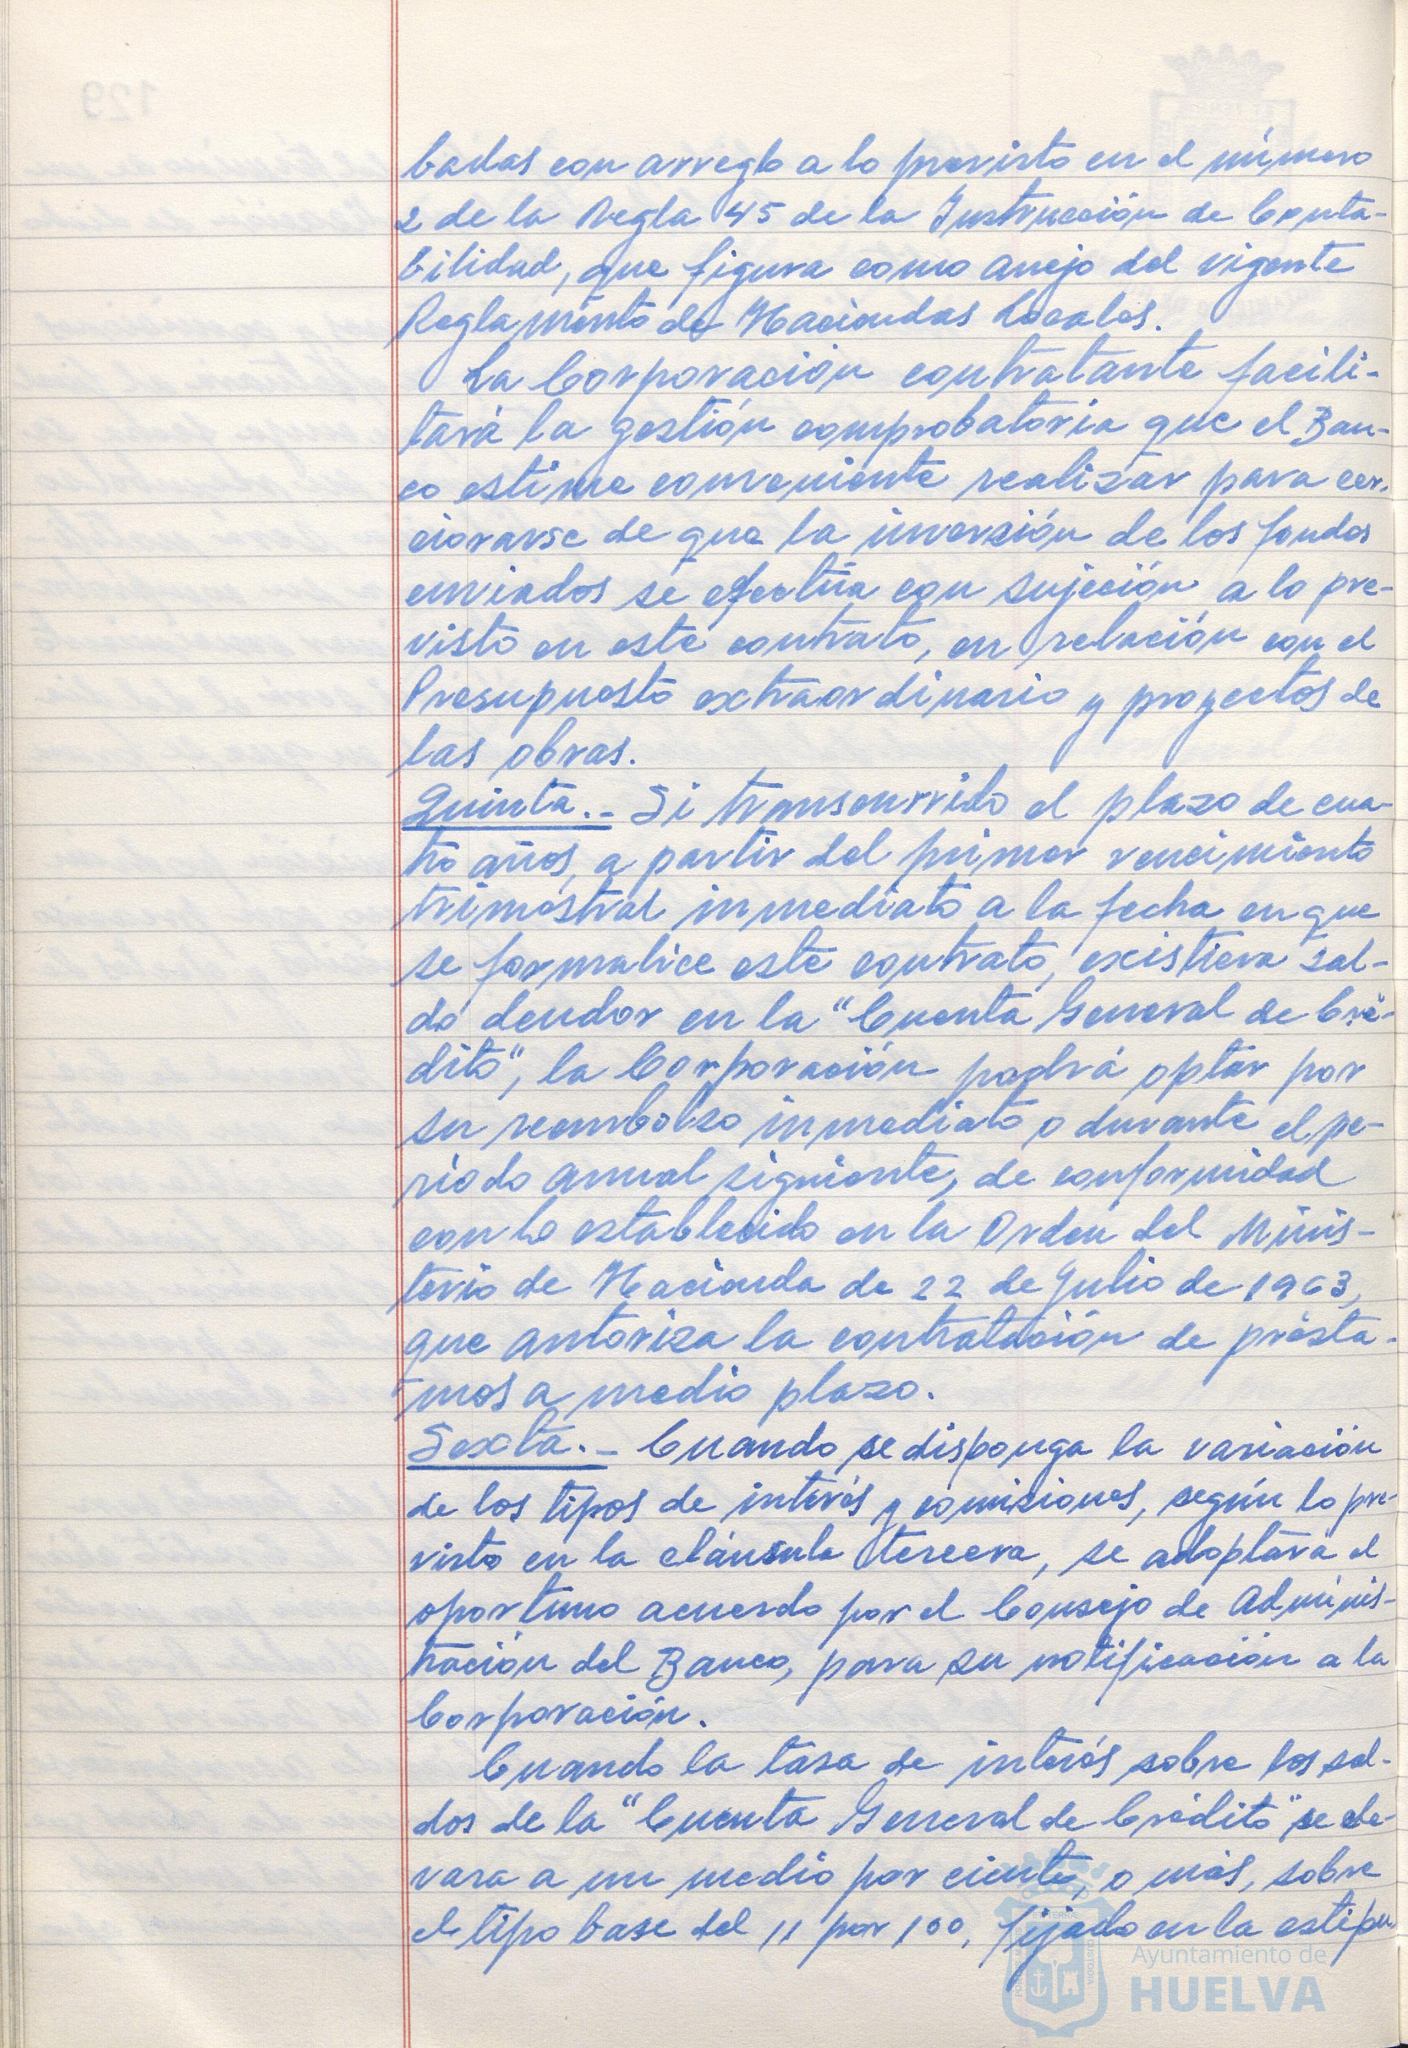 badas con arreglo a lo previsto en el número
2 de la Regla 45 de la Instrucción de Conta-
bilidad, que figura como anejo del vigente
Reglamento de Haciendas Locales.
La Corporación contratante facili-
tará la gestión comprobatoria que el Ban-
co estime conveniente realizar para cer-
ciorarse de que la inversión de los fondos
enviados se efectúa con sujeción a lo pre-
visto en este contrato, en relación con el
Presupuesto extraordinario y proyectos de
las obras.
Quinta.- Si transcurrido el plazo de cua-
tro años, a partir del primer vencimiento
trimestral inmediato a la fecha en que
se formalice este contrato, existiera sal-
do deudor en la "Cuenta General de Cré-
dito", la Corporación podrá optar por
su reembolso inmediato o durante el pe-
riodo anual siguiente, de conformidad
con lo establecido en la Orden del Minis-
terio de Hacienda de 22 de Julio de 1963,
que autoriza la contratación de présta-
mos a medio plazo.
Sexta.- Cuando se disponga la variación
de los tipos de interés y comisiones, según lo pre-
visto en la cláusula tercera, se adoptará el
oportuno acuerdo por el Consejo de Adminis-
tración del Banco, para su notificación a la
Corporación.
Cuando la tasa de interés sobre los sal-
dos de la "Cuenta General de Crédito" se ele-
vara a un medio por ciento, o más, sobre
el tipo base del 11 por 100, fijado en la estipu
Ayuntamiento de
HUELVA